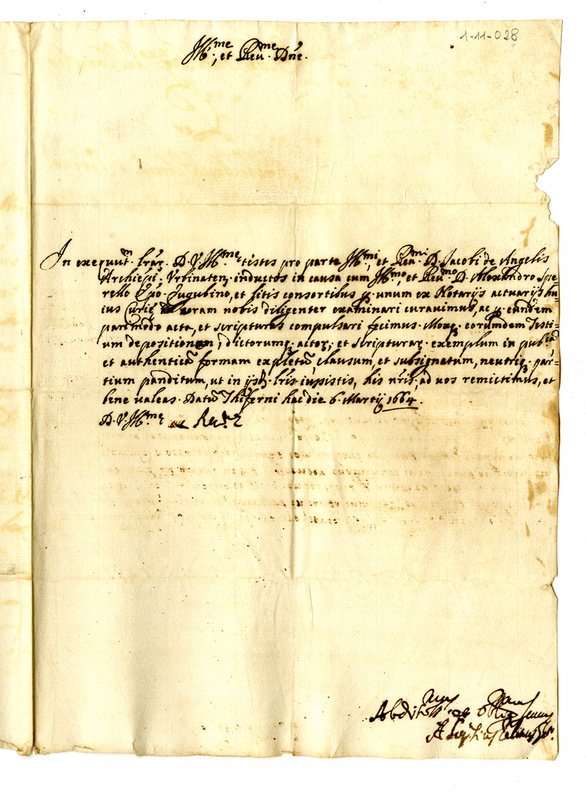 1-11-028
Ill.me, et Reu.me Dne.
In exequut.m lrar. D. V. Ill.me testes pro parte Ill.mi, et Reu.mi D. Jacobi de Angelis
Archiepi Vrbinaten. inductos in causa cum Ill.mo, et Reu.mo D. Alexandro Spe
rello Epo Eugubino, et litis consortibus p. unum ex Notarijs actuarijs hu
ius Curię coram nobis diligenter examinari curauimus, ac p. eundem
parimodo acta, et scripturas compulsari fecimus. Moxq. eorundem Testi-
um depositionem, dictorumq. actor. et scripturar. exemplum in pub.ca
et authenticā formam expletū clausum, et subsignatum, neutriq. par-
tium panditum, ut in ip̄s lris iussistis, his nris, ad vos remictimus, et
bene valeas. Datū Thiferni hac die 6. Martij 1664.
D. V. Ill.me et Reu.e